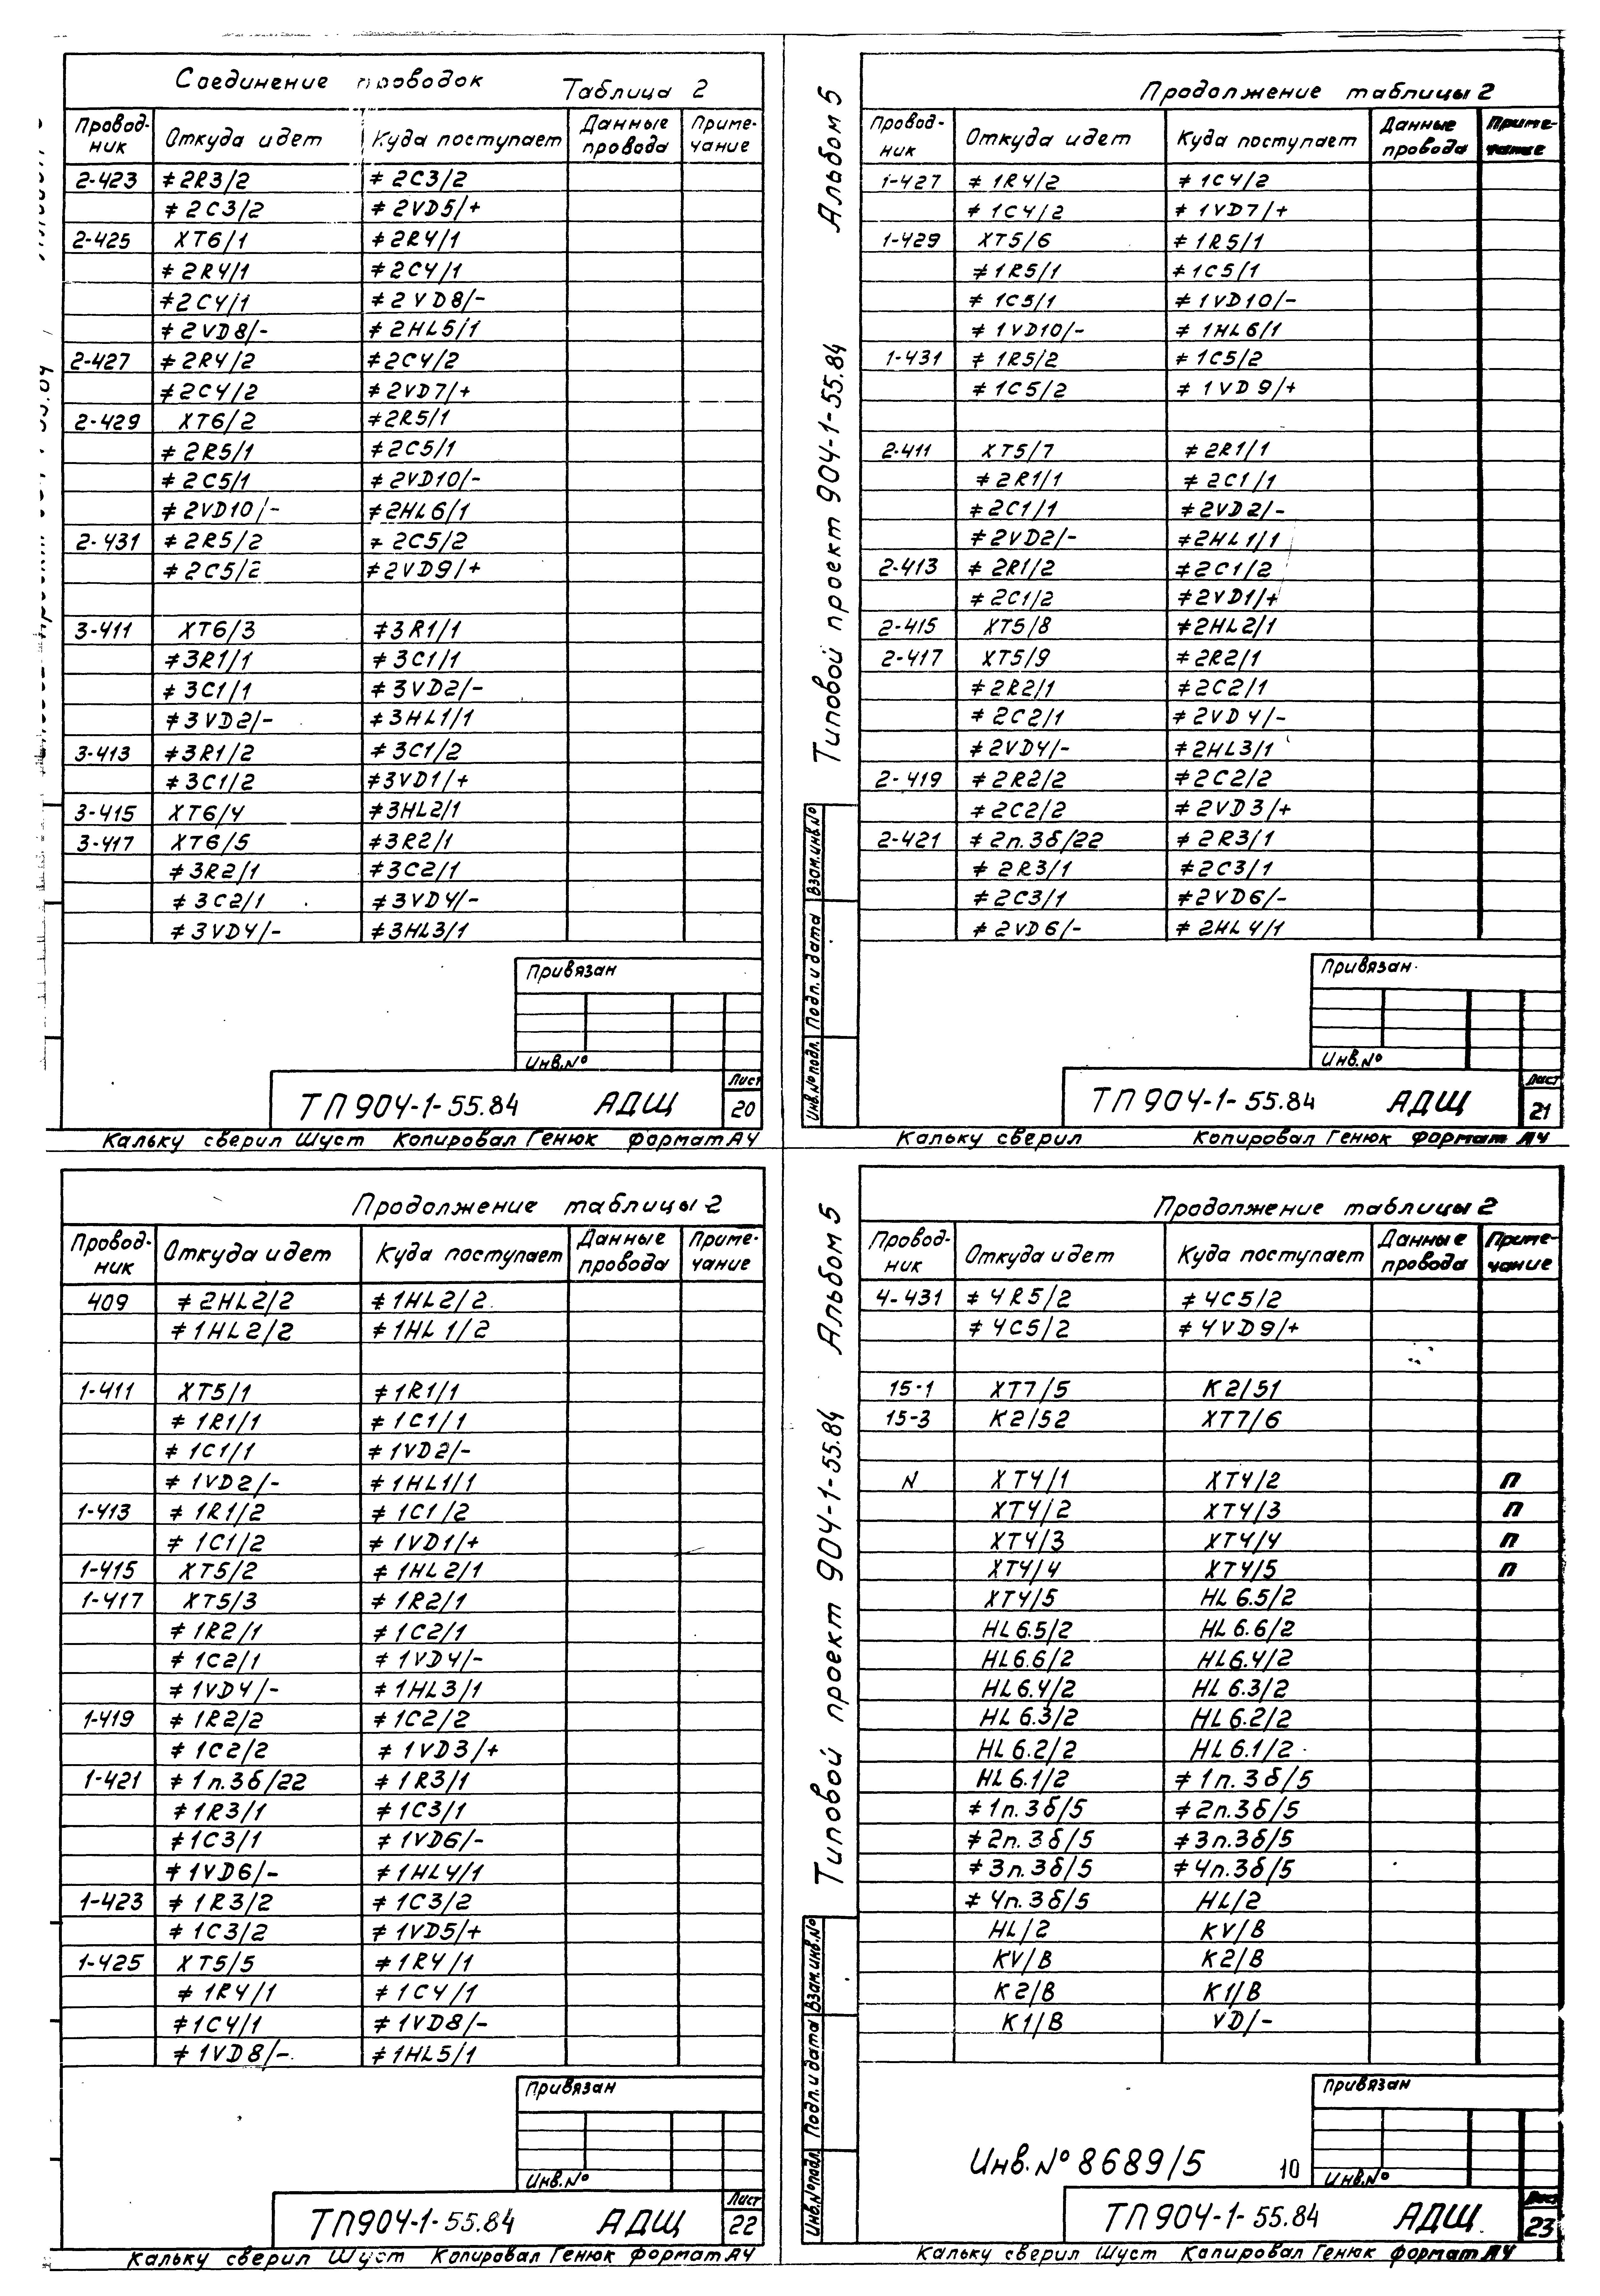 Соединение проводок Таблица 2
Провод-ник Откуда идет Куда поступает Данные провода Приме-чание
2-423 ≠2R3/2 ≠2C3/2
≠2C3/2 ≠2VD5/+
2-425 XT6/1 ≠2R4/1
≠2R4/1 ≠2C4/1
≠2C4/1 ≠2VD8/-
≠2VD8/- ≠2HL5/1
2-427 ≠2R4/2 ≠2C4/2
≠2C4/2 ≠2VD7/+
2-429 XT6/2 ≠2R5/1
≠2R5/1 ≠2C5/1
≠2C5/1 ≠2VD10/-
≠2VD10/- ≠2HL6/1
2-431 ≠2R5/2 ≠2C5/2
≠2C5/2 ≠2VD9/+
3-411 XT6/3 ≠3R1/1
≠3R1/1 ≠3C1/1
≠3C1/1 ≠3VD2/-
≠3VD2/- ≠3HL1/1
3-413 ≠3R1/2 ≠3C1/2
≠3C1/2 ≠3VD1/+
3-415 XT6/4 ≠3HL2/1
3-417 XT6/5 ≠3R2/1
≠3R2/1 ≠3C2/1
≠3C2/1 ≠3VD4/-
≠3VD4/- ≠3HL3/1
Привязан
Инв.№
ТП 904-1-55.84 АДЩ Лист 20
Кальку сверил Шуст Копировал Генюк формат А4
Альбом 5
Типовой проект 904-1-55.84
Взам.инв.№
Подп. и дата
Инв.№ подл.
Продолжение таблицы 2
Провод-ник Откуда идет Куда поступает Данные провода Приме-чание
1-427 ≠1R4/2 ≠1C4/2
≠1C4/2 ≠1VD7/+
1-429 XT5/6 ≠1R5/1
≠1R5/1 ≠1C5/1
≠1C5/1 ≠1VD10/-
≠1VD10/- ≠1HL6/1
1-431 ≠1R5/2 ≠1C5/2
≠1C5/2 ≠1VD9/+
2-411 XT5/7 ≠2R1/1
≠2R1/1 ≠2C1/1
≠2C1/1 ≠2VD2/-
≠2VD2/- ≠2HL1/1
2-413 ≠2R1/2 ≠2C1/2
≠2C1/2 ≠2VD1/+
2-415 XT5/8 ≠2HL2/1
2-417 XT5/9 ≠2R2/1
≠2R2/1 ≠2C2/1
≠2C2/1 ≠2VD4/-
≠2VD4/- ≠2HL3/1
2-419 ≠2R2/2 ≠2C2/2
≠2C2/2 ≠2VD3/+
2-421 ≠2п.3б/22 ≠2R3/1
≠2R3/1 ≠2C3/1
≠2C3/1 ≠2VD6/-
≠2VD6/- ≠2HL4/1
Привязан
Инв.№
ТП 904-1-55.84 АДЩ Лист 21
Кальку сверил Копировал Генюк формат А4
Продолжение таблицы 2
Провод-ник Откуда идет Куда поступает Данные провода Приме-чание
409 ≠2HL2/2 ≠1HL2/2
≠1HL2/2 ≠1HL1/2
1-411 XT5/1 ≠1R1/1
≠1R1/1 ≠1C1/1
≠1C1/1 ≠1VD2/-
≠1VD2/- ≠1HL1/1
1-413 ≠1R1/2 ≠1C1/2
≠1C1/2 ≠1VD1/+
1-415 XT5/2 ≠1HL2/1
1-417 XT5/3 ≠1R2/1
≠1R2/1 ≠1C2/1
≠1C2/1 ≠1VD4/-
≠1VD4/- ≠1HL3/1
1-419 ≠1R2/2 ≠1C2/2
≠1C2/2 ≠1VD3/+
1-421 ≠1п.3б/22 ≠1R3/1
≠1R3/1 ≠1C3/1
≠1C3/1 ≠1VD6/-
≠1VD6/- ≠1HL4/1
1-423 ≠1R3/2 ≠1C3/2
≠1C3/2 ≠1VD5/+
1-425 XT5/5 ≠1R4/1
≠1R4/1 ≠1C4/1
≠1C4/1 ≠1VD8/-
≠1VD8/- ≠1HL5/1
Привязан
Инв.№
ТП 904-1-55.84 АДЩ Лист 22
Кальку сверил Шуст Копировал Генюк формат А4
Альбом 5
Типовой проект 904-1-55.84
Взам.инв.№
Подп. и дата
Инв.№ подл.
Продолжение таблицы 2
Провод-ник Откуда идет Куда поступает Данные провода Приме-чание
4-431 ≠4R5/2 ≠4C5/2
≠4C5/2 ≠4VD9/+
15-1 XT7/5 K2/51
15-3 K2/52 XT7/6
N XT4/1 XT4/2 п
XT4/2 XT4/3 п
XT4/3 XT4/4 п
XT4/4 XT4/5 п
XT4/5 HL6.5/2
HL6.5/2 HL6.6/2
HL6.6/2 HL6.4/2
HL6.4/2 HL6.3/2
HL6.3/2 HL6.2/2
HL6.2/2 HL6.1/2
HL6.1/2 ≠1п.3б/5
≠1п.3б/5 ≠2п.3б/5
≠2п.3б/5 ≠3п.3б/5
≠3п.3б/5 ≠4п.3б/5
≠4п.3б/5 HL/2
HL/2 KV/B
KV/B K2/B
K2/B K1/B
K1/B VD/-
Привязан
Инв.№ 8689/5 10 Инв.№
ТП 904-1-55.84 АДЩ Лист 23
Кальку сверил Шуст Копировал Генюк формат А4